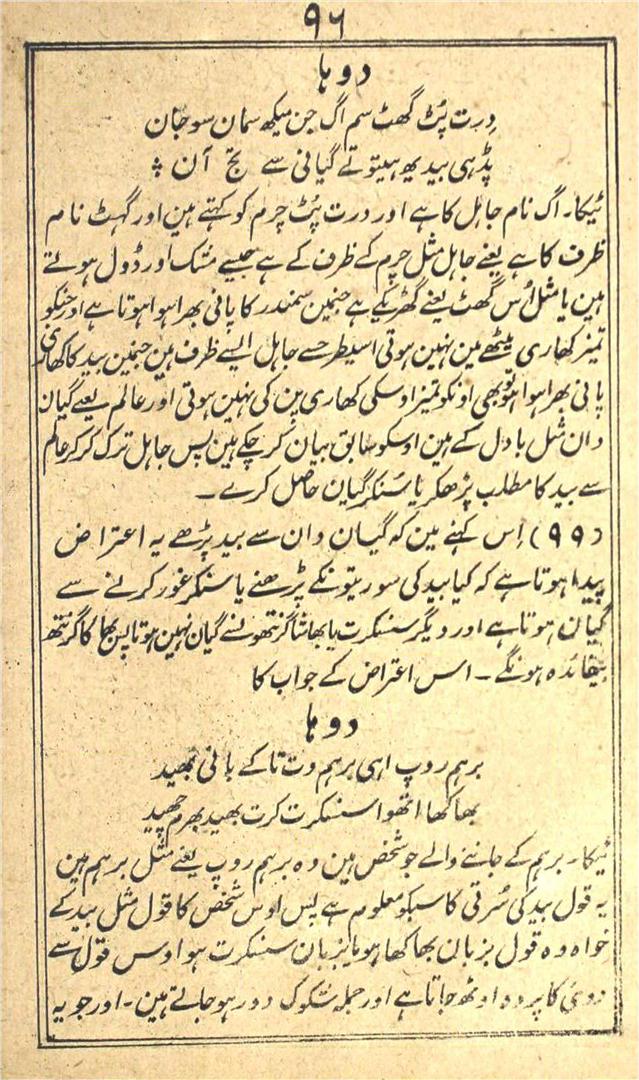 ۹۶
دوہا
دِرت پُٹ گھٹ سم اگ جن میکھ سمان سوجان
پڈہی بیدیھ ہیتوتے گیانی سے تج آن
ٹیکا۔ اگ نام جاہل کا ہے اور درت پُٹ چرم کو کہتے ہین اور گہٹ نام
ظرف کا ہے یعنے جاہل مثل چرم کے ظرف کے ہے جیسے مشک اور ڈول ہوتے
ہین یا مثل اُس گھٹ یعنے گھڑیکے ہے جنمین سمندر کا پانی بھرا ہوا ہوتا ہے اور جنکو
تمیز کھاری میٹھے مین نہین ہوتی اسیطرحسے جاہل ایسے ظرف ہین جنمین بید کا کھاری
پانی بھرا ہوا ہو توبھی اونکو تمیز اوسکی کھاری پن کی نہین ہوتی اور عالم یعنے گیان
دان مثل بادل کے ہین اوسکو سابق بیان کر چکے ہین پس جاہل ترک کر کر عالم
سے بید کا مطلب پڑھکر یا سنکر گیان حاصل کرے۔
(۹۹) اِس کہنے مین کہ گیان دان سے بید پڑھے یہ اعتراض
پیدا ہوتا ہے کہ کیا بید کی سوریتونکے پڑھنے یا سنکر غور کرنے سے
گیان ہوتا ہے اور دیگر سنسکرت یا بھاشا گرنتھونسے گیان نہین ہوتا پس بھاکا گرنتھ
بیفائدہ ہونگے۔ اس اعتراض کے جواب کا
دوہا
برہم روپ اہی برہم وت تاکے بانی بھید
بھاکھا اتھوا سنسکرت کرت بھید بھرم چھید
ٹیکا۔ برہم کے جاننے والے جو شخص ہین وہ برہم روپ یعنے مثل برہم ہین
یہ قول بید کی سُرتی کا سبکو معلوم ہے پس اوس شخص کا قول مثل بید کے
خواہ وہ قول بزبان بھاکھا ہو یا بزبان سنسکرت ہو اوس قول سے
دوئی کا پردہ اوٹھ جاتا ہے اور جملہ شکوک دور ہو جاتے ہین۔ اور جو یہ